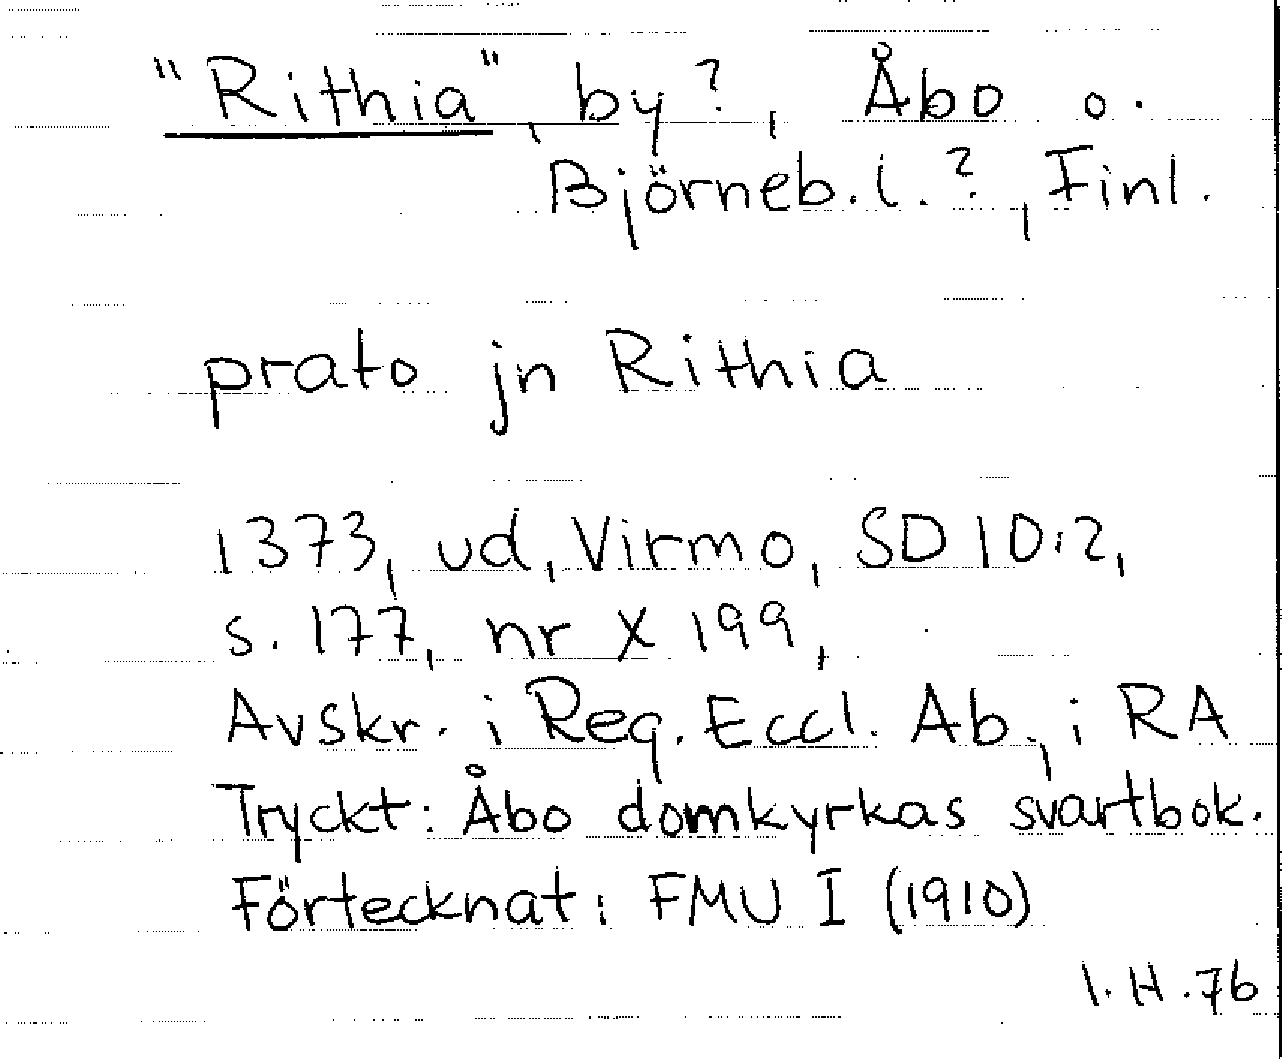 "Rithia", by?, Åbo o.
Björneb. l.?, Finl.
prato jn Rithia
1373, ud, Virmo, SD 10:2,
s. 177, nr X 199,
Avskr. i Reg. Eccl. Ab., i RA
Tryckt: Åbo domkyrkas svartbok.
Förtecknat: FMU I (1910)
I. H. 76